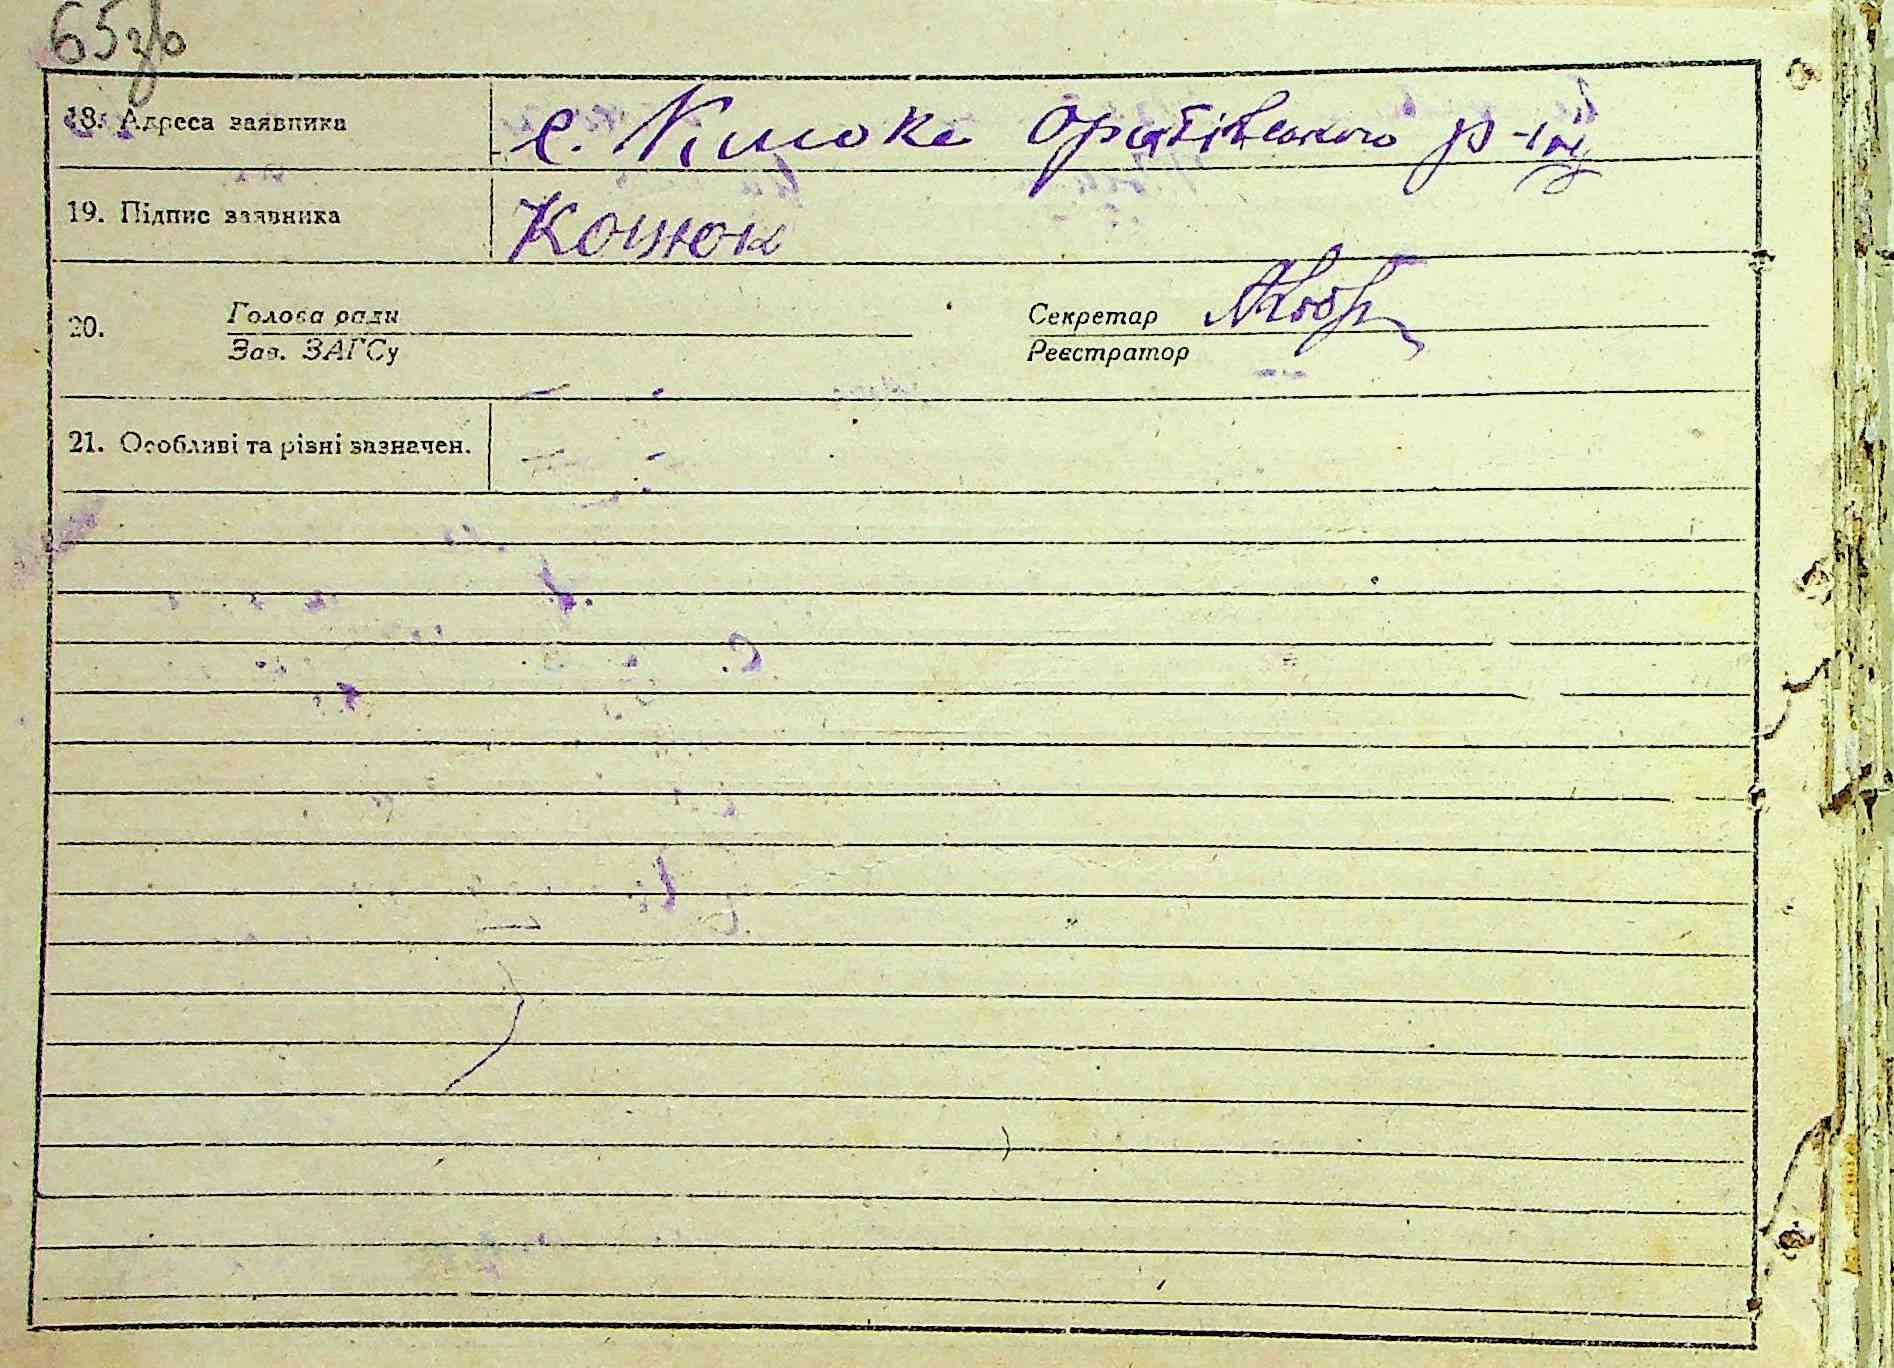 65зв
18. Адреса заявника с. Оратівського р-ну
19. Підпис заявника Коцюк
20. Голова ради Секретар
Зав. ЗАГСу Реєстратор
21. Особливі та різні зазначен.